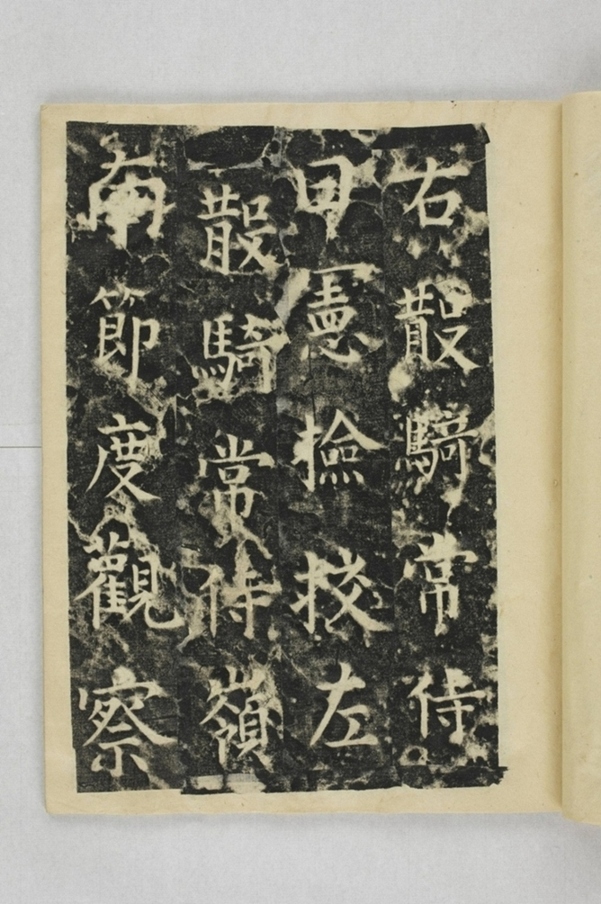 右散騎常侍
曰憲撿挍左
散騎常侍嶺
南節度觀察